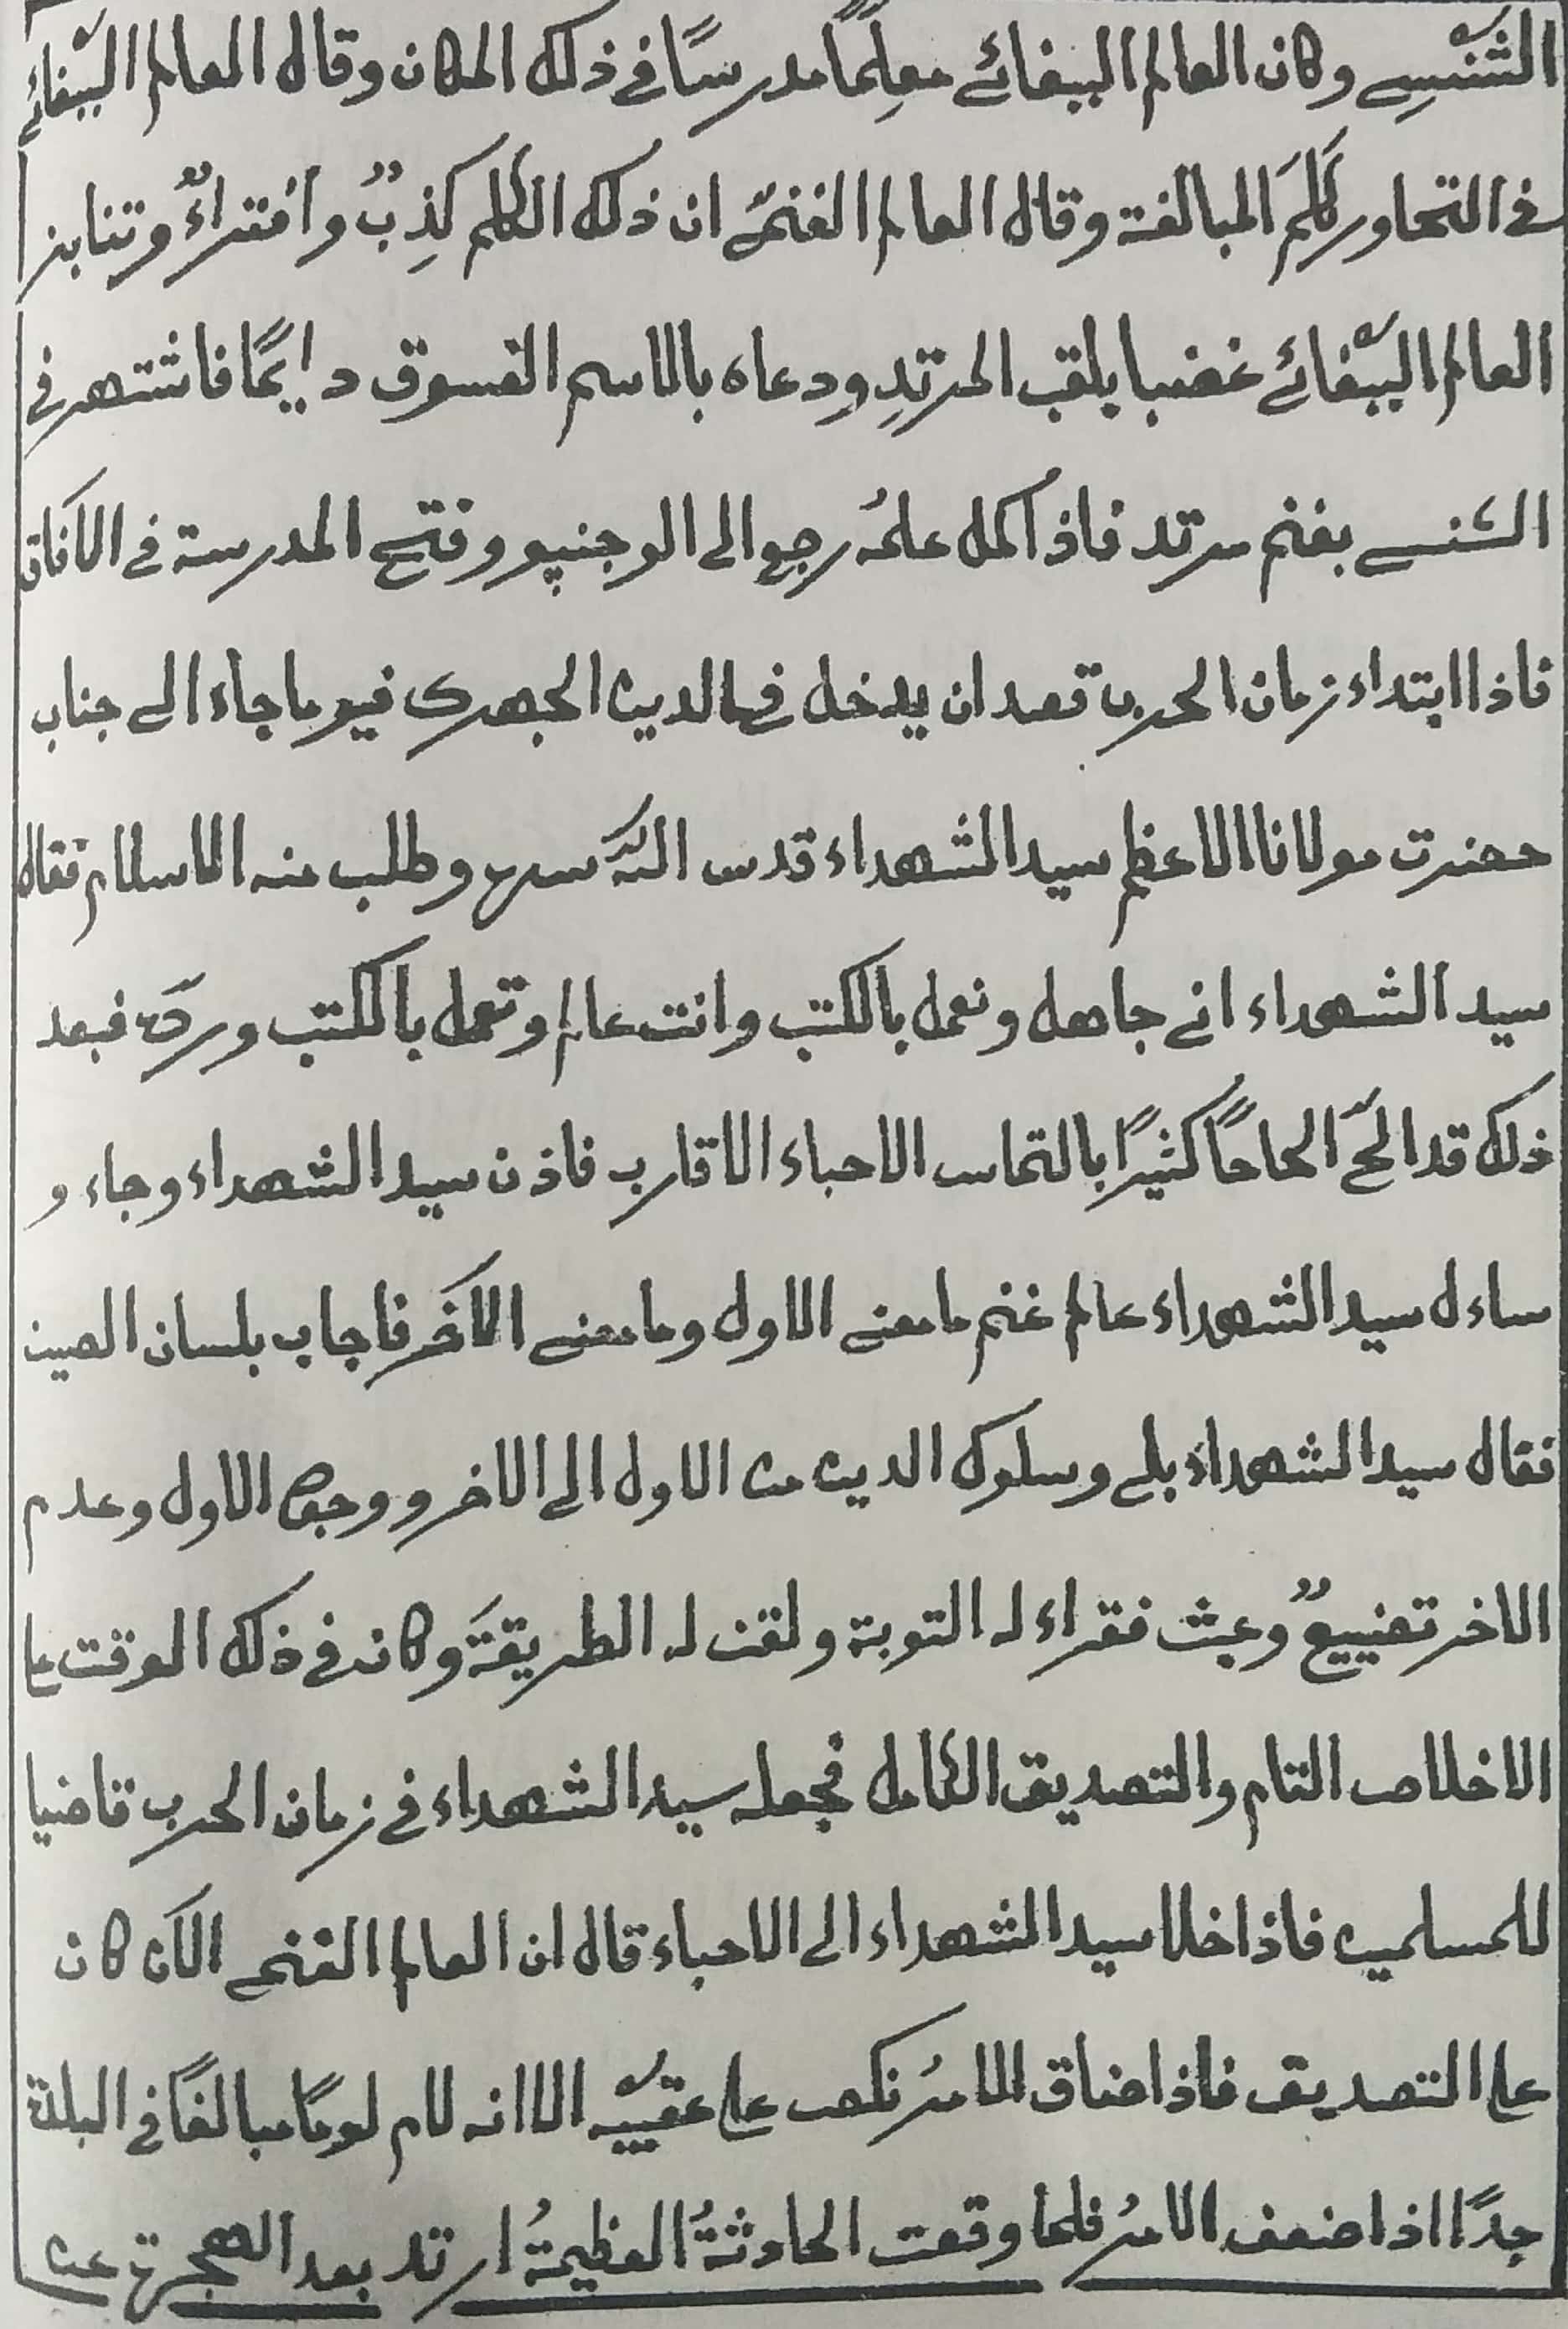 الشَّنْسِے وكان العالم الببغائے معلِمًا مدرسًا فے ذلك المكان وقال العالم الببّغائے
فے التحاور كَلِمَ المبالغة وقال العالم الغنمّے ان ذلك الكلم كذِبٌ وافتراءٌ وتنابز
العالم الببّغائے غضبا بلقب المرتدِ ودعاه بالاسم الفسوق دايمًا فاشتهر فى
الشنسے بغنم مرتد فاذ اكمل علمُه رجع الى الوجنپو وفتح المدرسة فے الافاق
فاذا ابتداء زمان الحرب قصد ان يدخل فے الدين الجهرى فيوما جاء الے جناب
حضرت مولانا الاعظم سيد الشهداء قدس اللّه سره وطلب منه الاسلام فقال
سيد الشهداء انے جاهل ونعمل بالكتب وانت عالم وتعمل بالكتب وردّه فبعد
ذلك قد الحّ الحاحًا كثيرًا بالتماس الاحباء الاقارب فاذن سيد الشهداء وجاء و
ساءل سيد الشهداء عالم غنم ما معنے الاول وما معنے الآخر فاجاب بلسان الصين
فقال سيد الشهداء بلے وسلوك الدين من الاول الى الاخر ووجود الاول وعدم
الاخر تضييعٌ وعث فقراء له التوبة ولقن له الطريقةَ وكان فے ذلك الوقت علے
الاخلاص التام والتصديق الكامل فجعله سيد الشهداء فے زمان الحرب قاضيا
للمسلمين فاذا خلا سيد الشهداء الى الاحباء قال ان العالم الغنمے الآن كان
علے التصديق فاذا ضاق الامرُ نكص علے عقبيّه الا انه لام لومًا مبالغًا فے البلدة
جدًا اذا ضعف الامرُ فلما وقعت الحادثةُ العظيمةُ ارتد بعد الهجرة عن